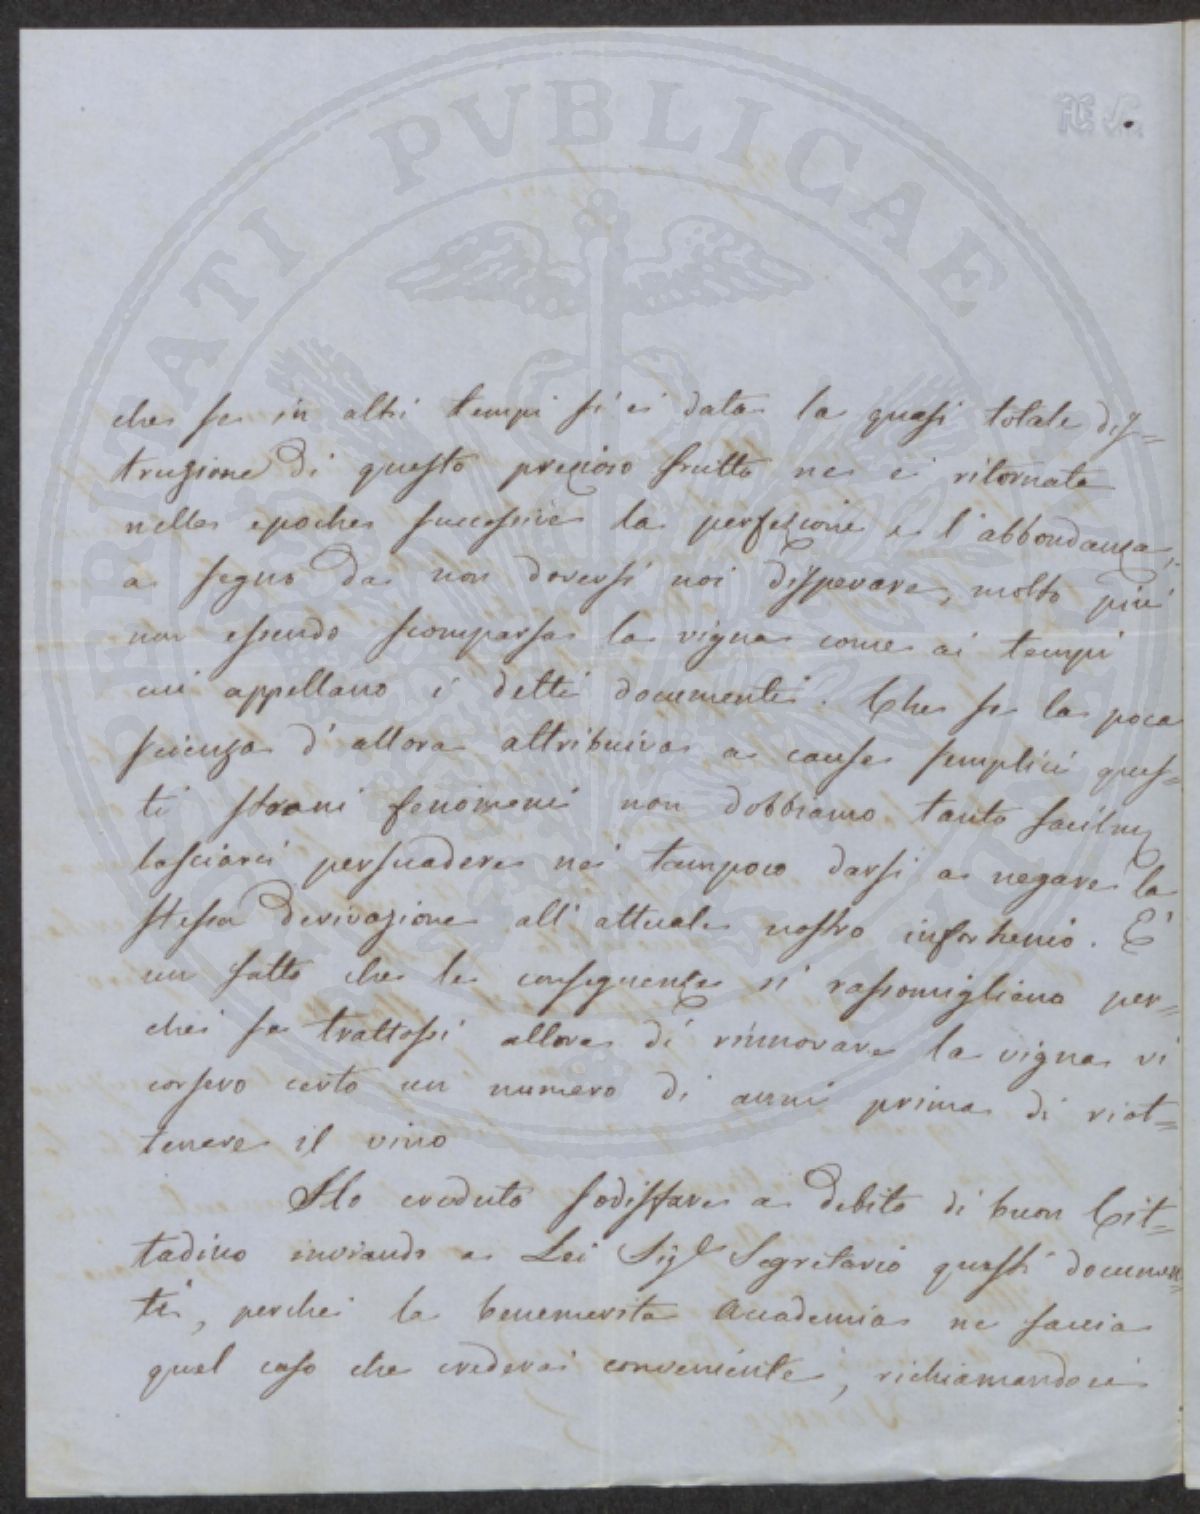 PROSPERITATI PVBLICAE
che se in altri tempi si è data la quasi totale dis=
truzione di questo prezioso frutto ne è ritornata
nelle epoche successive la perfezione e l'abbondanza,
a segno da non doversi noi disperare, molto più
non essendo scomparsa la vigna come ai tempi
cui appellano i detti documenti. Che se la poca
scienza d'allora attribuiva a cause semplici ques=
ti strani fenomeni non dobbiamo tanto facilm
lasciarci persuadere nè tampoco darsi a negare la
stessa derivazione all'attuale nostro infortunio. È
un fatto che le conseguenze si rassomigliano per=
chè se trattossi allora di rinnovare la vigna vi
corsero certo un numero di anni prima di riot=
tenere il vino
Ho creduto sodisfare a debito di buon Cit=
tadino inviando a Lei Sigr Segretario questi documen=
ti, perchè la benemerita Accademia ne faccia
quel caso che crederà conveniente, richiamandoci